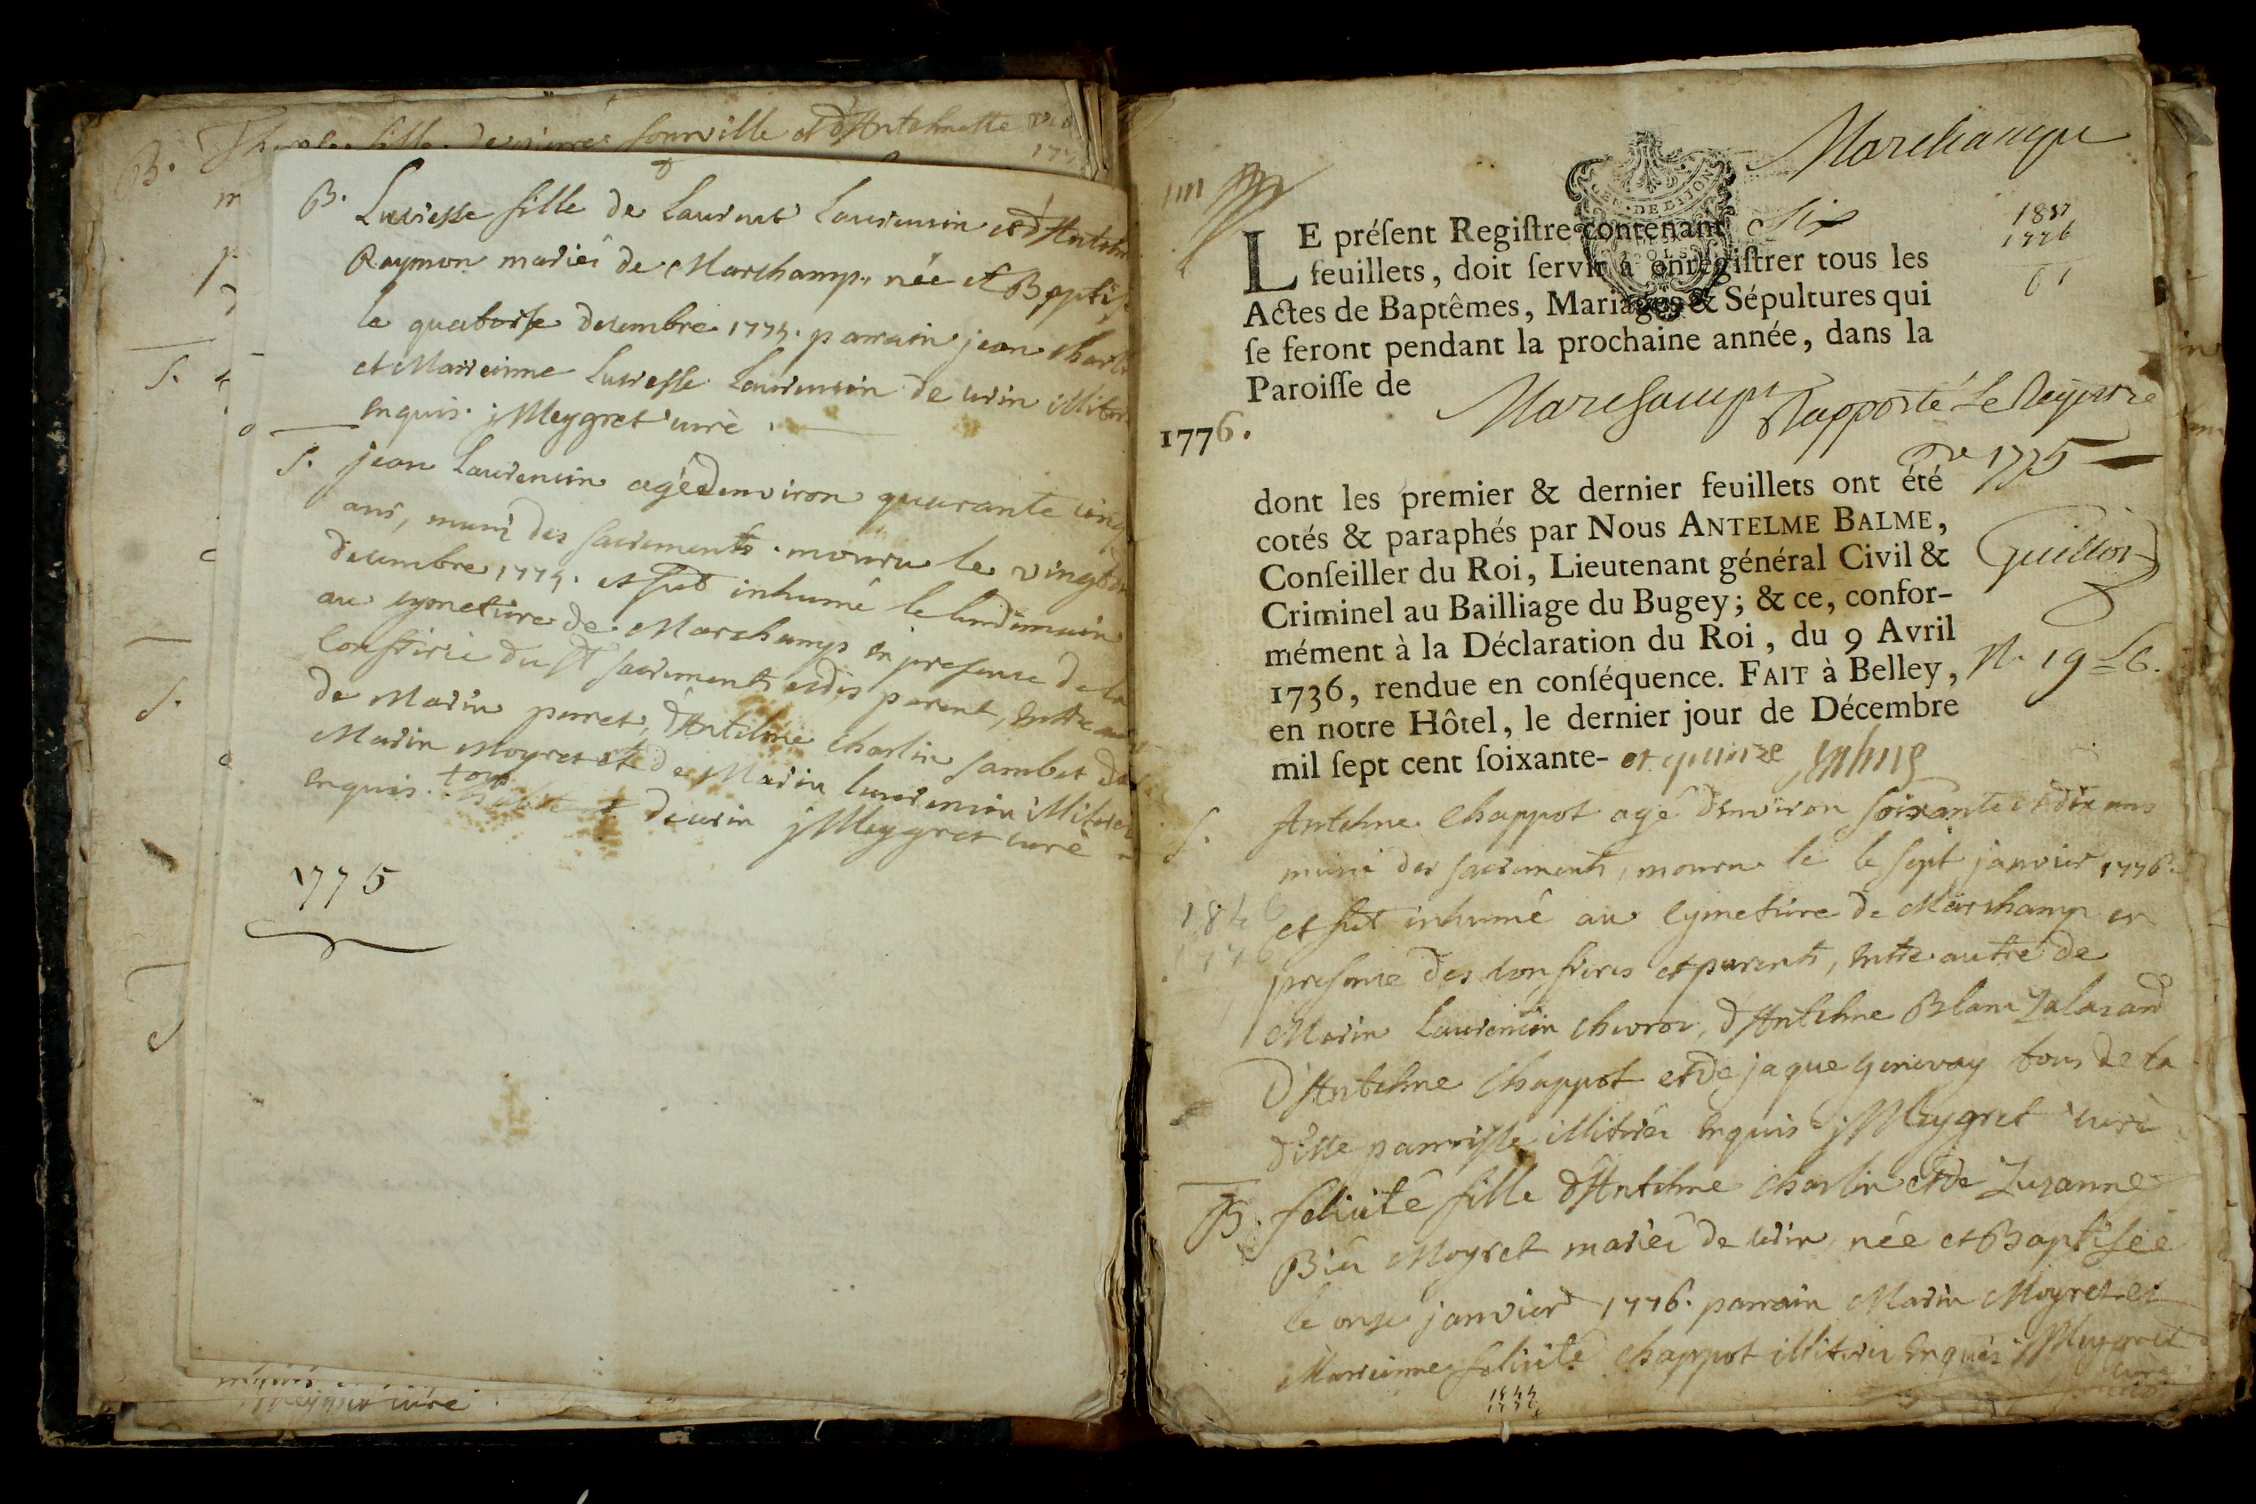 B.
fille de
sonville et d'Antelmette
B. Lucresse fille de Laurent Laurencin et d'Antelm
Raymon mariés de Marchamp. née et Baptisé
le quatorse decembre 1775. parrain jean charl
et Marreinne Lucresse Laurencin de urin illiter
enquis. j Meygret curé.
S. jean Laurencin agé denviron quarante cinq
ans, muni des sacrements. mouru le vingt
decembre 1775. et fut inhumé le lendemain
au cymetiere de Marchamp en presence de la
confririe du st sacrement et des parent, entre autre
de Marin parret, d'Antelme charlin sambet de
Marin Moyret et de Marin Laurencin illiter
enquis. tous de urin j Meygret curé
1775
curé
Marchamp
LE préſent Regiſtre contenant six
feuillets, doit ſervir à enregiſtrer tous les
Actes de Baptêmes, Mariages & Sépultures qui
ſe feront pendant la prochaine année, dans la
Paroiſſe de Marchamp
Rapporté Le Registre
de 1775
1776.
1837
1776
61
dont les premier & dernier feuillets ont été
cotés & paraphés par Nous ANTELME BALME,
Conſeiller du Roi, Lieutenant général Civil &
Criminel au Bailliage du Bugey; & ce, confor-
mément à la Déclaration du Roi, du 9 Avril
1736, rendue en conſéquence. FAIT à Belley,
en notre Hôtel, le dernier jour de Décembre
mil ſept cent ſoixante- et quinze
Guillot
N. 19
S. Antelme Chappot agé d'environ soixante et dix ans
muni des sacrements, mouru le le sept janvier 1776.
et fut inhumé au cymetiere de Marchamp en
presence des confreres et parents, entre autre de
Marin Laurencin chevron, d'Antelme Blanc
d'Antelme Chappot et de jaque genevay tous de la
ditte parroisse illiterés enquis j Meygret curé
B. felicité fille d'Antelme charlin et de Suzanne
Moyret mariés de urin, née et Baptisée
le onze janvier 1776. parrain Marin Moyret et
Marreinne felicité chappot illiteres enquis j Meygret
curé
1844
1776